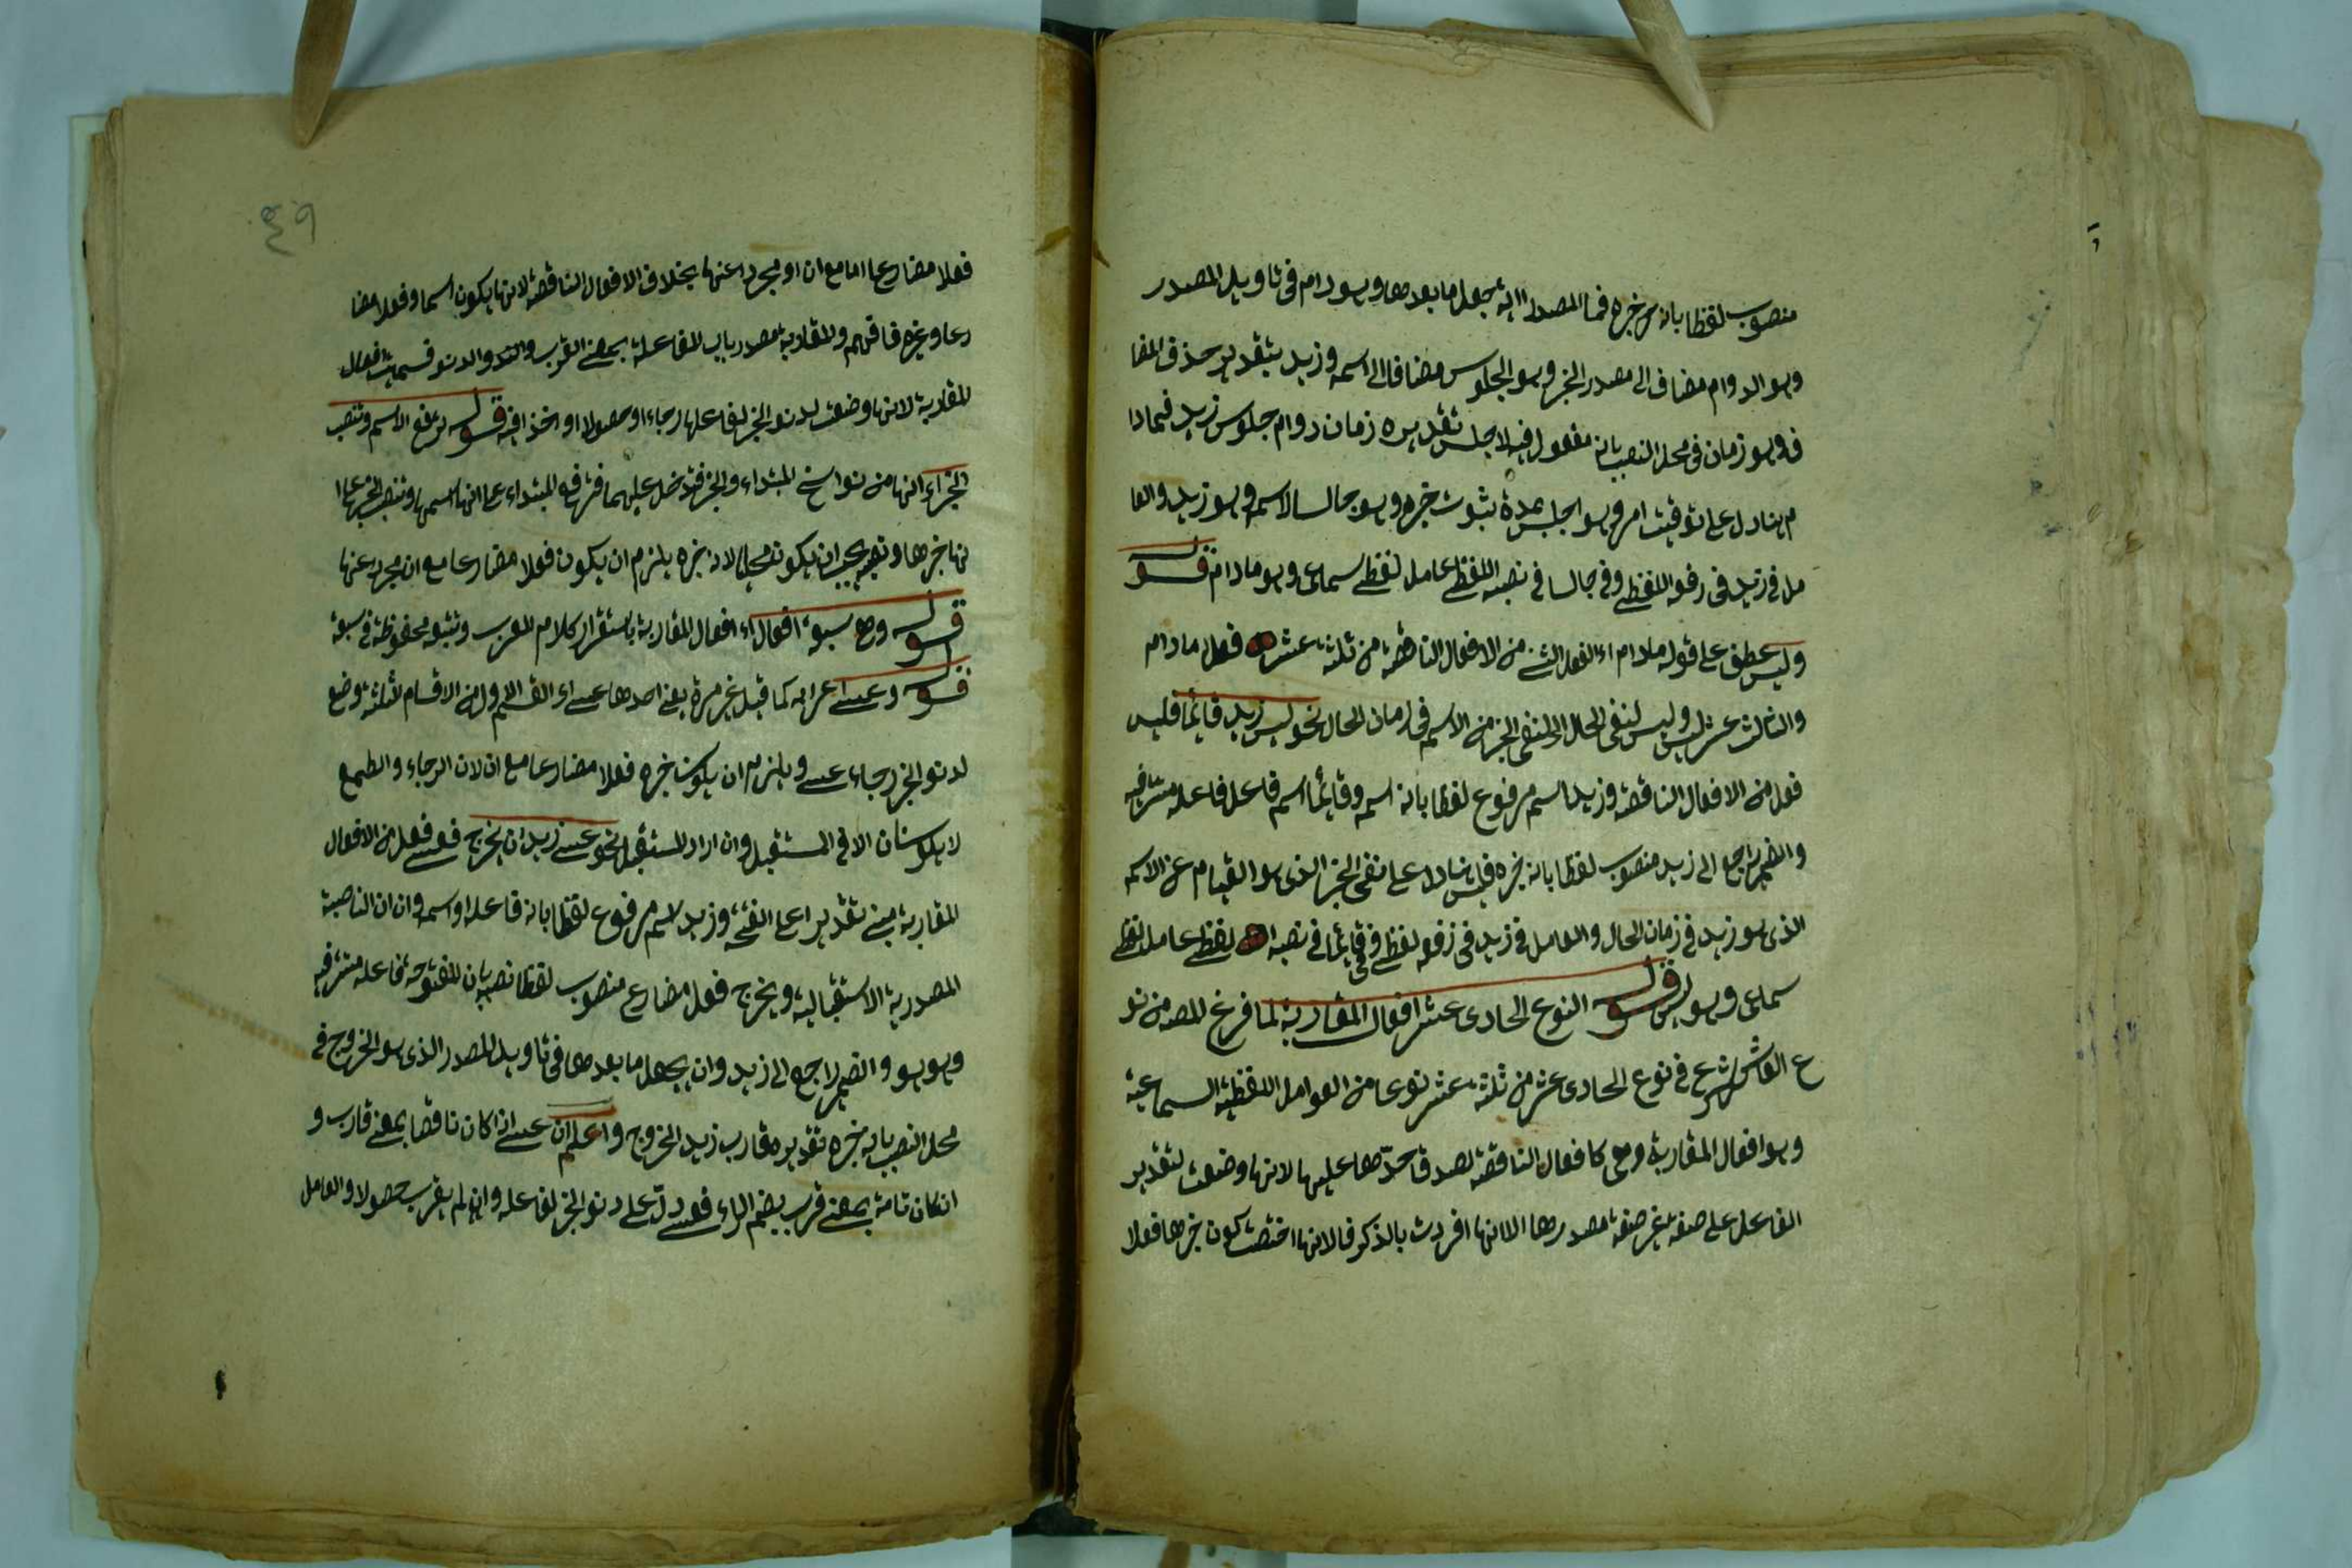 منصوب لفظا بانه خبره فما المصدرية يجعل ما بعدها وهو دام فى تاويل المصدر
وهو الدوام مضاف الى مصدر الخبر وهو الجلوس مضافا الى اسمه وزيد بتقدير حذف المضا
ف وهو زمان فى محل النصب بانه مفعول فيه لاجلس تقديره زمان دوام جلوس زيد فمادا
م هنا دل على توقيت امر وهو اجلس مدة ثبوت خبره وهو جالسا لاسمه وهو زيد والعا
مل فى زيد فى رفعه اللفظى وفى جالسا فى نصبه اللفظى عامل لفظى سماعى وهو مادام قوله
وليس عطف على قوله مادام اى الفعل من الافعال الناقصة من ثلثة عشر فعلا مادام
والثالث عشر ليس وليس لنفى الحال اى لنفى الخبر من الاسم فى زمان الحال نحو ليس زيد قائما فليس
فعل من الافعال الناقصة وزيد اسم مرفوع لفظا بانه اسمه وقائما اسم فاعل فاعله مستتر فيه
والضمير راجع الى زيد منصوب لفظا بانه خبره فليس هنا دل على نفى الخبر الذى هو القيام عن الاسم
الذى هو زيد فى زمان الحال والعامل فى زيد فى رفعه لفظى وفى قائما فى نصبه لفظى عامل لفظى
سماعى وهو ليس قوله النوع الحادى عشر افعال المقاربة لما فرغ المص من نو
ع العاشر شرع فى نوع الحادى عشر من ثلثة عشر نوعا من العوامل اللفظية السماعية
وهو افعال المقاربة وهى كافعال الناقصة لصدق حدها عليها لانها وضعت لتقدير
الفاعل على صفة غير صفة مصدرها الا انها افردت بالذكر لانها اختصت كون خبرها فعلا
٤٩
فعلا مضارعا اما مع ان او مجردا عنها بخلاف الافعال الناقصة لانها يكون اسما وفعلا مضا
رعا وغيره فافهم والمقاربة مصدر باب المفاعلة بمعنى القرب والدنو فسميت افعال
المقاربة لانها وضعت لدنو الخبر لفاعلها رجاء او حصولا او اخذا فيه قوله ترفع الاسم وتنصب
الخبر اى انها من نواسخ المبتداء والخبر فتدخل عليهما فترفع المبتداء على انها اسمها وتنصب الخبر على ا
نها خبرها ونصبه يجب ان يكون محليا لان خبره يلزم ان يكون فعلا مضارعا مع ان مجرد عنها
قوله وهى سبعة افعال اى افعال المقاربة باستقرار كلام العرب وتتبعه محفوظة فى سبعة
قوله وعسى اعرابه كما قيل غير مرة يعنى احدها عسى اى القسم الاول من الاقسام الثلثة وضع
لدنو الخبر رجاء عسى ويلزم ان يكون خبره فعلا مضارعا مع ان لان الرجاء والطمع
لا يكونان الا فى المستقبل وان اراد المستقبل نحو عسى زيد ان يخرج فعسى فعل من الافعال
المقاربة مبنى تقديرا على الفتح وزيد اسم مرفوع لفظا بانه فاعله او اسمه وان ان الناصبة
المصدرية الاستقبالية ويخرج فعل مضارع منصوب لفظا نصبه بان المفتوحة فاعله مستتر فيه
وهو هو والضمير راجع الى زيد وان يجعل ما بعدها فى تاويل المصدر الذى هو الخروج فى
محل النصب بانه خبره تقديره قارب زيد الخروج واعلم ان عسى اذا كان ناقصا بمعنى قارب و
ان كان تامة بمعنى قرب بضم الراء فعسى دل على دنو الخبر لفاعله وان لم يقرب حصولا والعامل